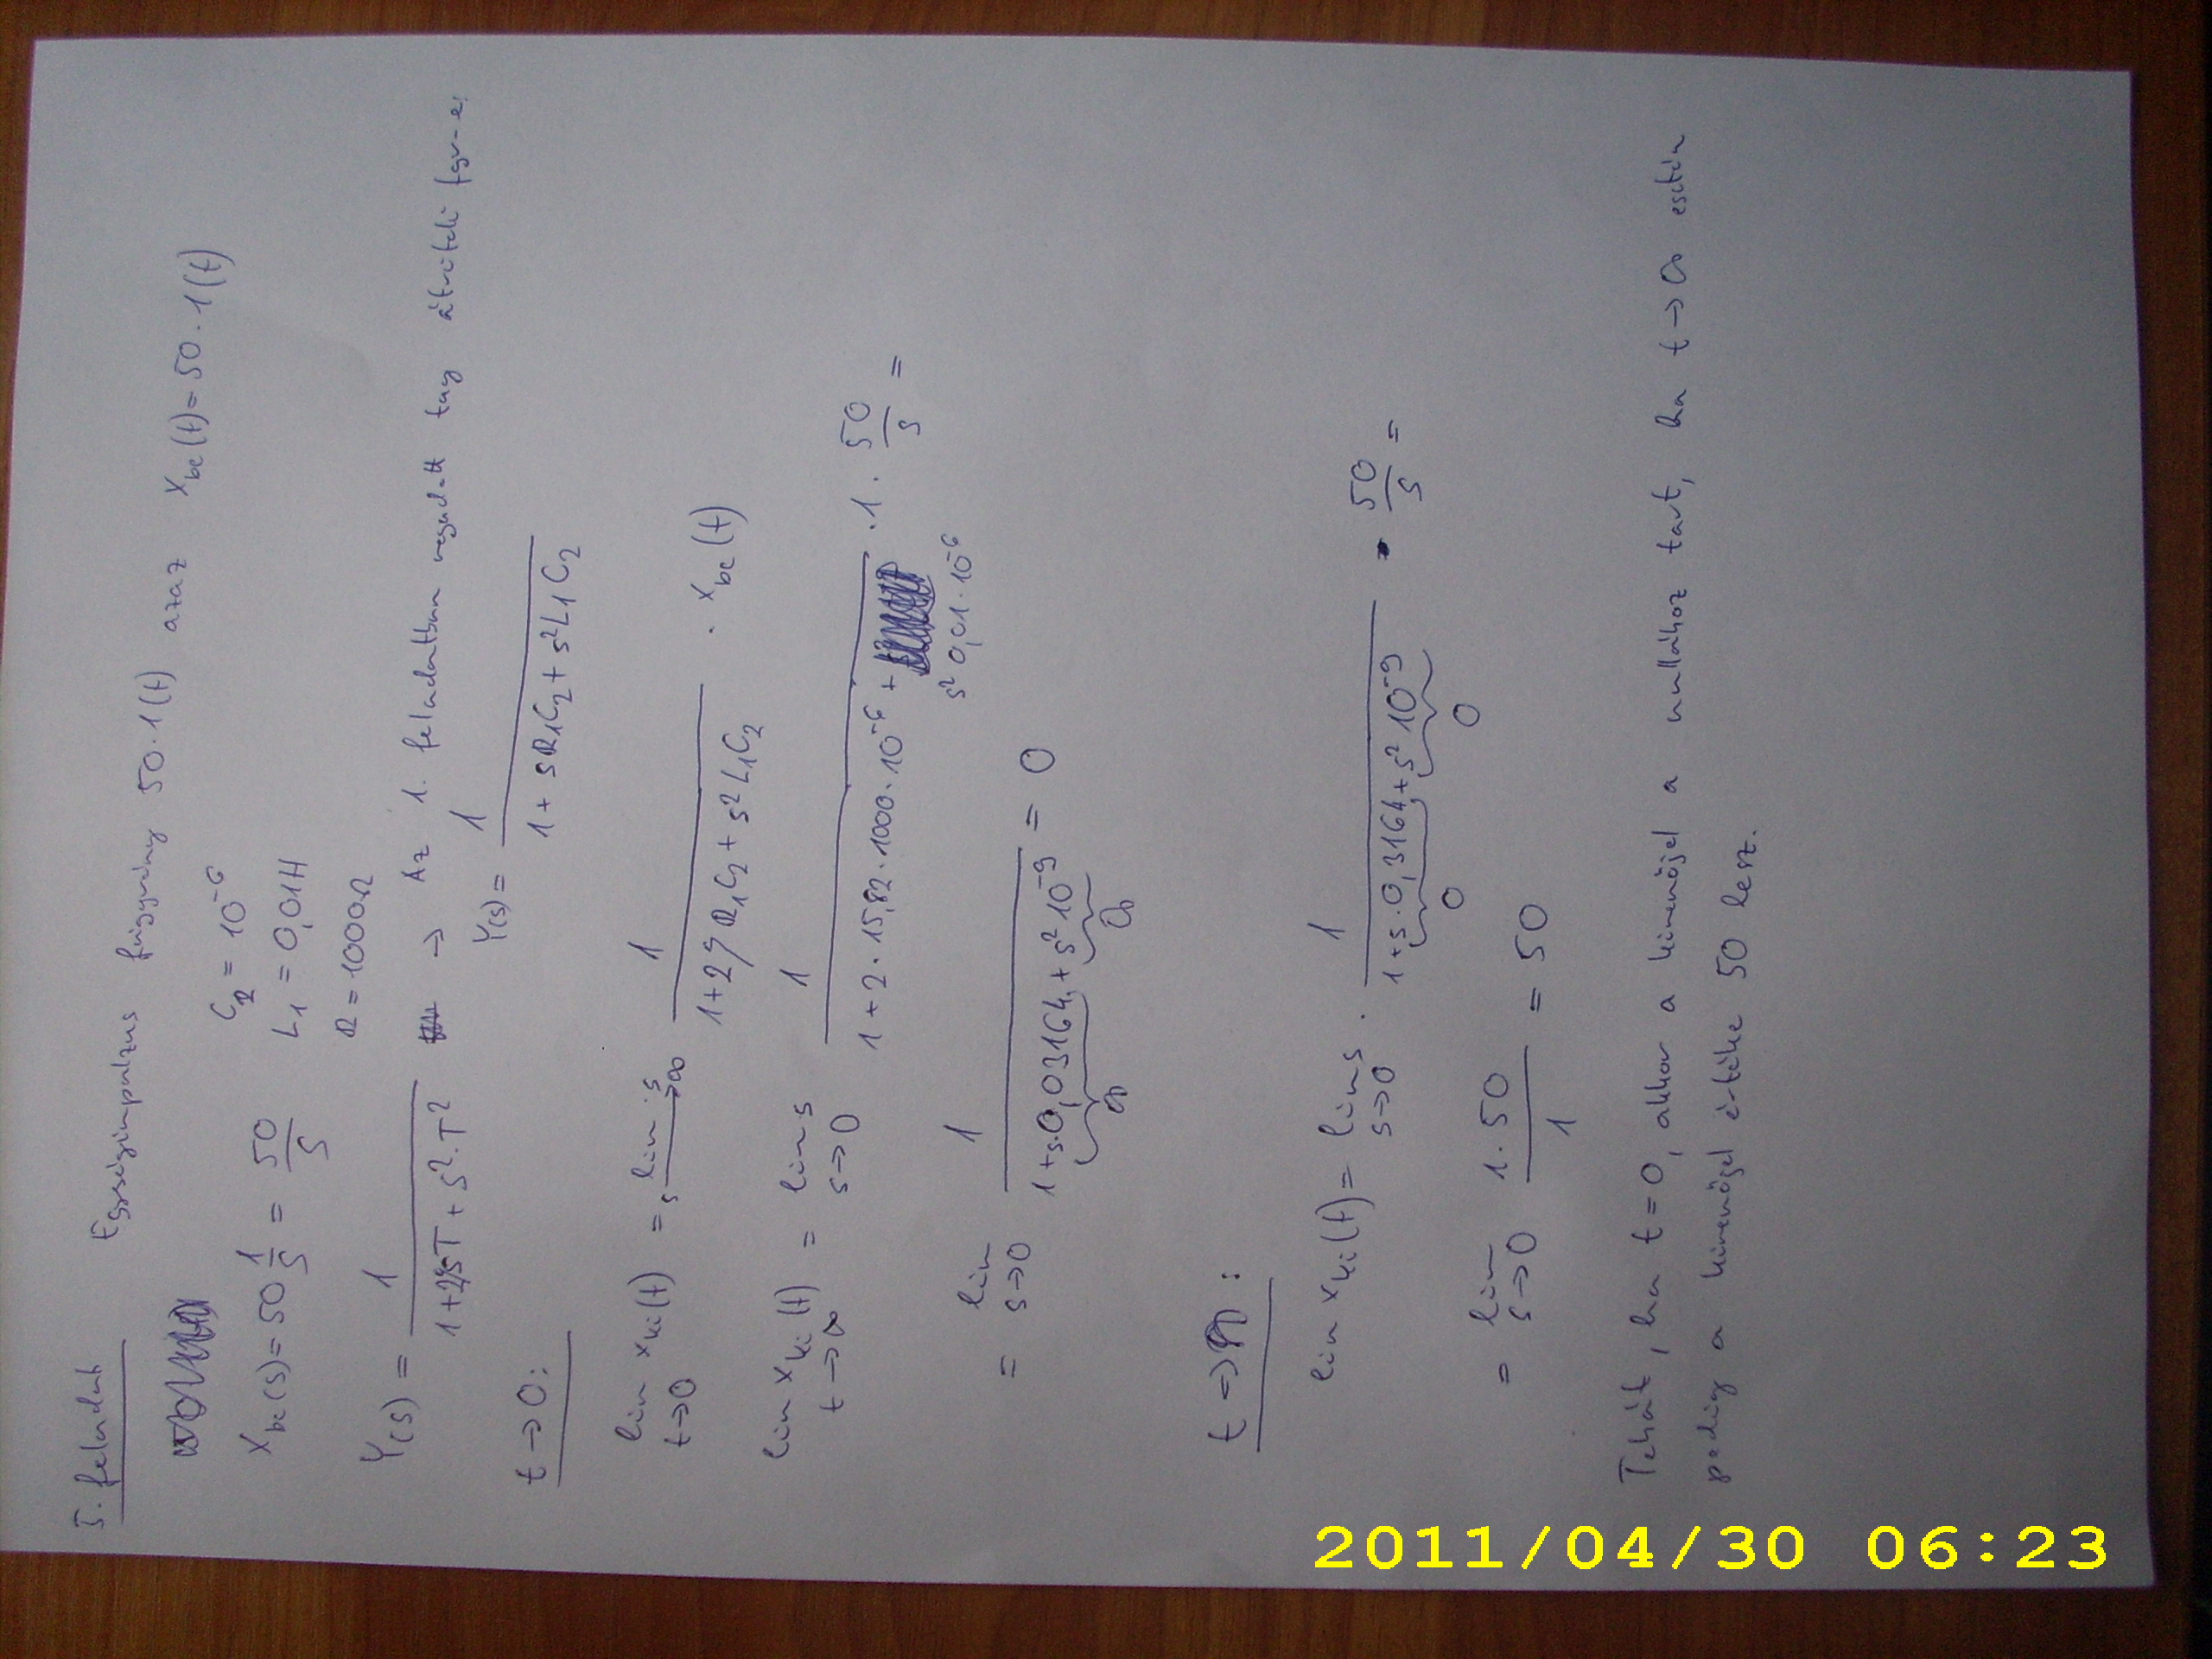 5. feladat Egységimpulzus függvény 50·1(t) azaz x_be(t)=50·1(t)
C_2 = 10^-6
x_be(s)=50 1/s = 50/s L_1 = 0,01H
R=1000Ω
Y(s) = 1/(1+2ξsT+s²·T²) → Az 1. feladatban megadott tag átviteli fgv-e:
Y(s)= 1/(1+sR_1C_2+s²L_1C_2)
t→0:
lim x_ki(t) = lim ·s 1/(1+2ξR_1C_2+s²L_1C_2) · x_be(t)
t→0 s→∞
lim x_ki(t) = lim s 1/(1+2·15,82·1000·10^-6+ s² 0,01·10^-6) ·1· 50/s =
t→∞ s→0
= lim 1/(1+s·0,03164+s² 10^-9) = 0
s→0 ∞ ∞
t→∞:
lim x_ki(t) = lim s · 1/(1+s·0,03164+s² 10^-9) · 50/s =
s→0 0 0
= lim 1·50/1 = 50
s→0
Tehát, ha t=0, akkor a kimenőjel a nullához tart, ha t→∞ esetén
pedig a kimenőjel értéke 50 lesz.
2011/04/30 06:23